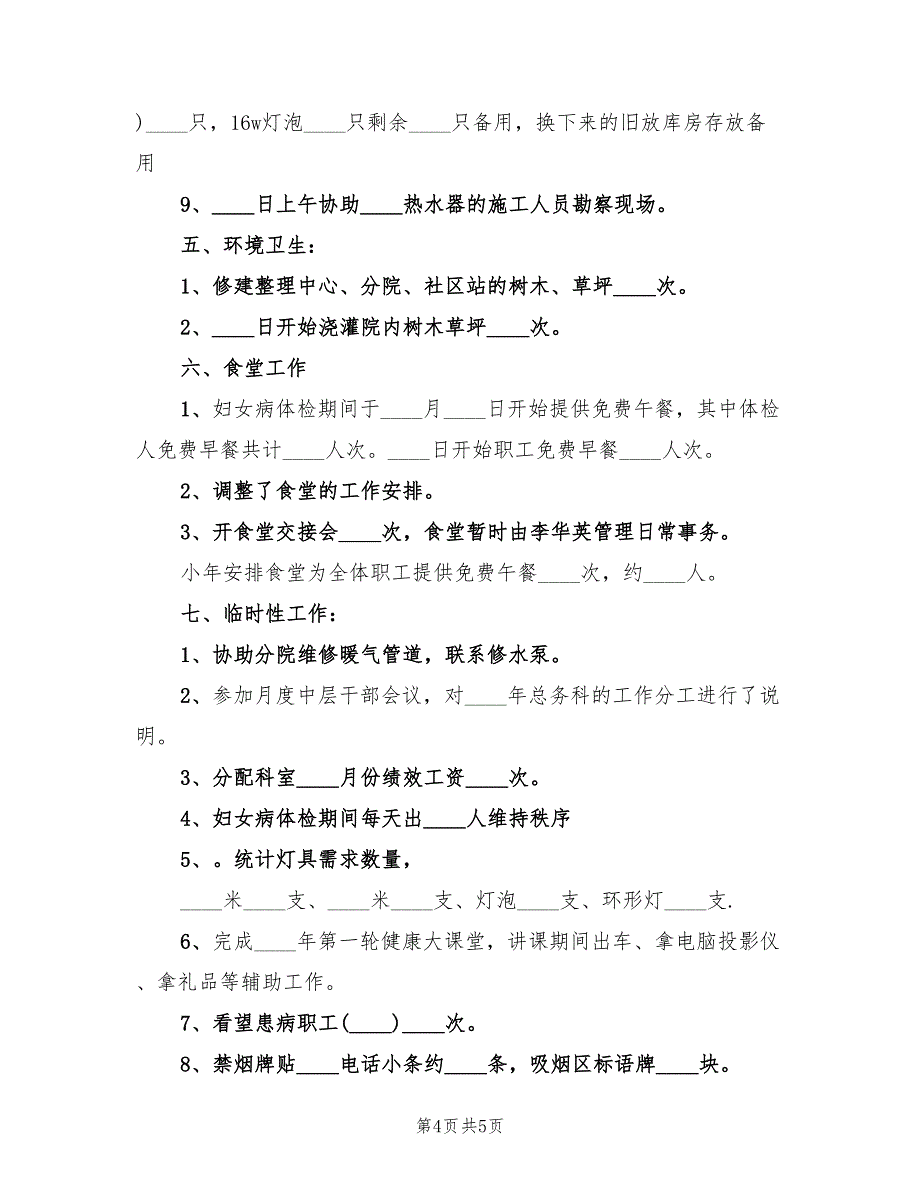 )____只，16w灯泡____只剩余____只备用，换下来的旧放库房存放备
用
9、____日上午协助____热水器的施工人员勘察现场。
五、环境卫生：
1、修建整理中心、分院、社区站的树木、草坪____次。
2、____日开始浇灌院内树木草坪____次。
六、食堂工作
1、妇女病体检期间于____月____日开始提供免费午餐，其中体检
人免费早餐共计____人次。____日开始职工免费早餐____人次。
2、调整了食堂的工作安排。
3、开食堂交接会____次，食堂暂时由李华英管理日常事务。
小年安排食堂为全体职工提供免费午餐____次，约____人。
七、临时性工作：
1、协助分院维修暖气管道，联系修水泵。
2、参加月度中层干部会议，对____年总务科的工作分工进行了说
明。
3、分配科室____月份绩效工资____次。
4、妇女病体检期间每天出____人维持秩序
5、。统计灯具需求数量，
____米____支、____米____支、灯泡____支、环形灯____支.
6、完成____年第一轮健康大课堂，讲课期间出车、拿电脑投影仪
、拿礼品等辅助工作。
7、看望患病职工(____)____次。
8、禁烟牌贴____电话小条约____条，吸烟区标语牌____块。
第4页共5页